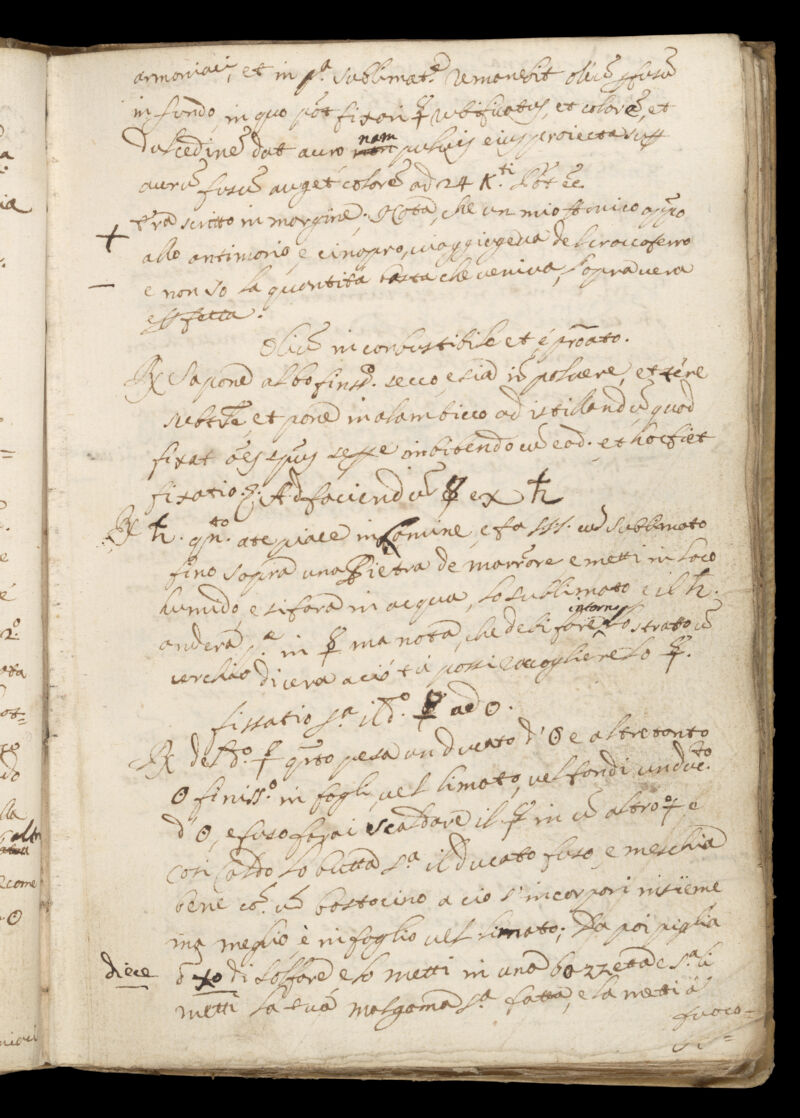 armoniaci, et in p.ª sublimat.e remanebit oleũ fusũ
in fundo, in quo põt fixari ☿ et colorẽ, et
dulcedinẽ dat auro nam pulvis eius proiecta sup
aurũ fusũ auget colorẽ ad 24 K.ti
+ Era scritto in margine. Nota, che un mio amico
allo antimonio, e cinapro, viaggiogeva del croco ferro
– e non so la quantità che veniva, sopra vera
effetta.
Oleũ incombustibile et é prõato.
℞ Sapone albo finis.º secco, e sia in polvere, et tére
subt.le et pone in alambicco ad istillandũ quod
fixat ões spũs sepe inbibendo cũ eod. et hoc fiet
fixatio. Ad faciendũ ☿ ex ♄
℞ ♄. qn.to ate piace in lamine, e fa sss. cũ sublimato
fino sopra una Pietra de marmore e metti in loco
humido, e si farà in acqua, lo sublimato e il ♄.
anderà s.ª in ☿ ma nota, che devi fare intorno lo strato ũ
cerchio di cera acció tú possi racogliere lo ☿.
fissatio s.ª il d.º ☿ ad ☉.
℞ de d.º ☿ qnto pesa un ducato d' ☉ e altretanto
☉ finiss.º in fogli, vel limato, vel fondi un duc.to
d' ☉, e fuso farai scaldare il ☿ in ũ altro e
cosi caldo lo butta s.ª il ducato fuso, e meschia
bene cõ ũ bastocino a cio s'incorpori insieme
ma meglio è in foglio vel limato; Da poi piglia
diece
di solfare e lo metti in una bozzeta e s.ª li
metti la tua malgama s.ª fatta, e la metti á
fuoco=